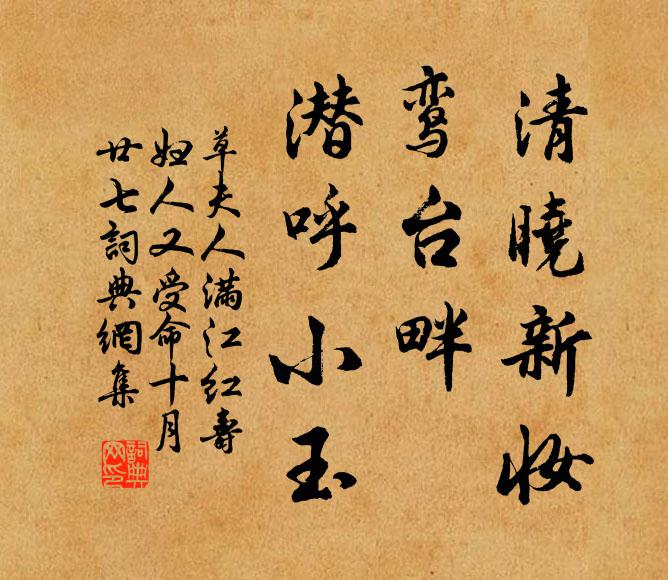 清曉新妝
鸾台畔
潜呼小玉
草夫人滿江红壽
妇人又受命十月
廿七詞典網集
詞典网印